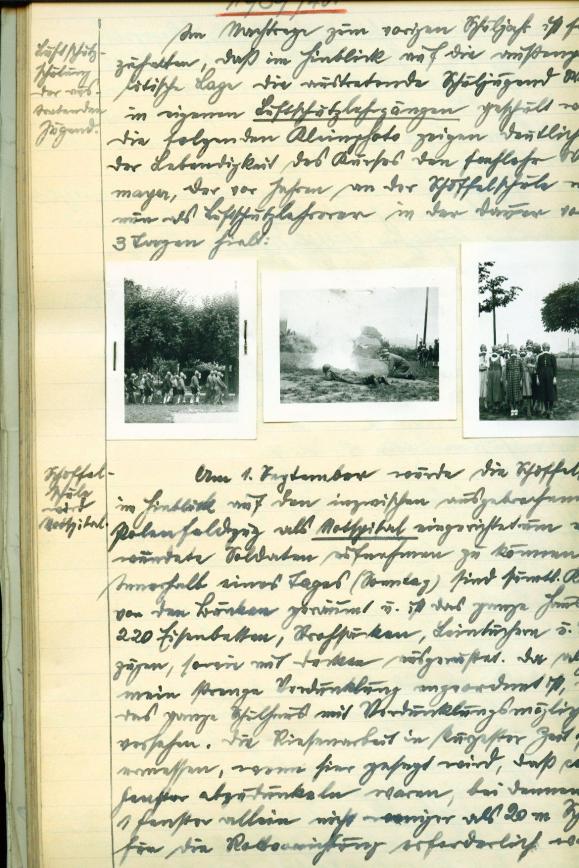 Luftschutz-
schulung
der aus-
tretenden
Jugend.
Im Nachtrage zum vorigen Schuljahr ist
zuhalten, daß im Hinblick auf die außenp
litische Lage die austretende Schuljugend
in eigenen Luftschutzlehrgängen geschult
die folgenden Kleinphoto zeigen deutlich
der Lebendigkeit des Kurses den Fachlehr
mayer, der vor Jahren an der Schöffelschule
nun als Luftschutzlehrer in der Dauer vo
3 Tagen hielt:
Schöffel-
schule
wird
Notspital.
Am 1. September wurde die Schöffel
im Hinblick auf den inzwischen ausgebrochenen
Polenfeldzug als Notspital eingerichtet um
wundete Soldaten aufnehmen zu können
Innerhalb eines Tages (Sonntag) sind sämtl.
von den Bänken geräumt u. ist das ganze
220 Eisenbetten, Strohsäcken, Leintüchern u.
zügen, sowie mit Decken ausgerüstet. Da al
mein strenge Verdunklung angeordnet ist,
das ganze Schulhaus mit Verdunklungsmöglig
versehen. Die Riesenarbeit in kürzester Zeit
ermessen, wenn hier gesagt wird, daß
Fenster abzudunkeln waren, bei denen
1 Fenster allein nicht weniger als 20 m
für die Rollvorrichtung erforderlich